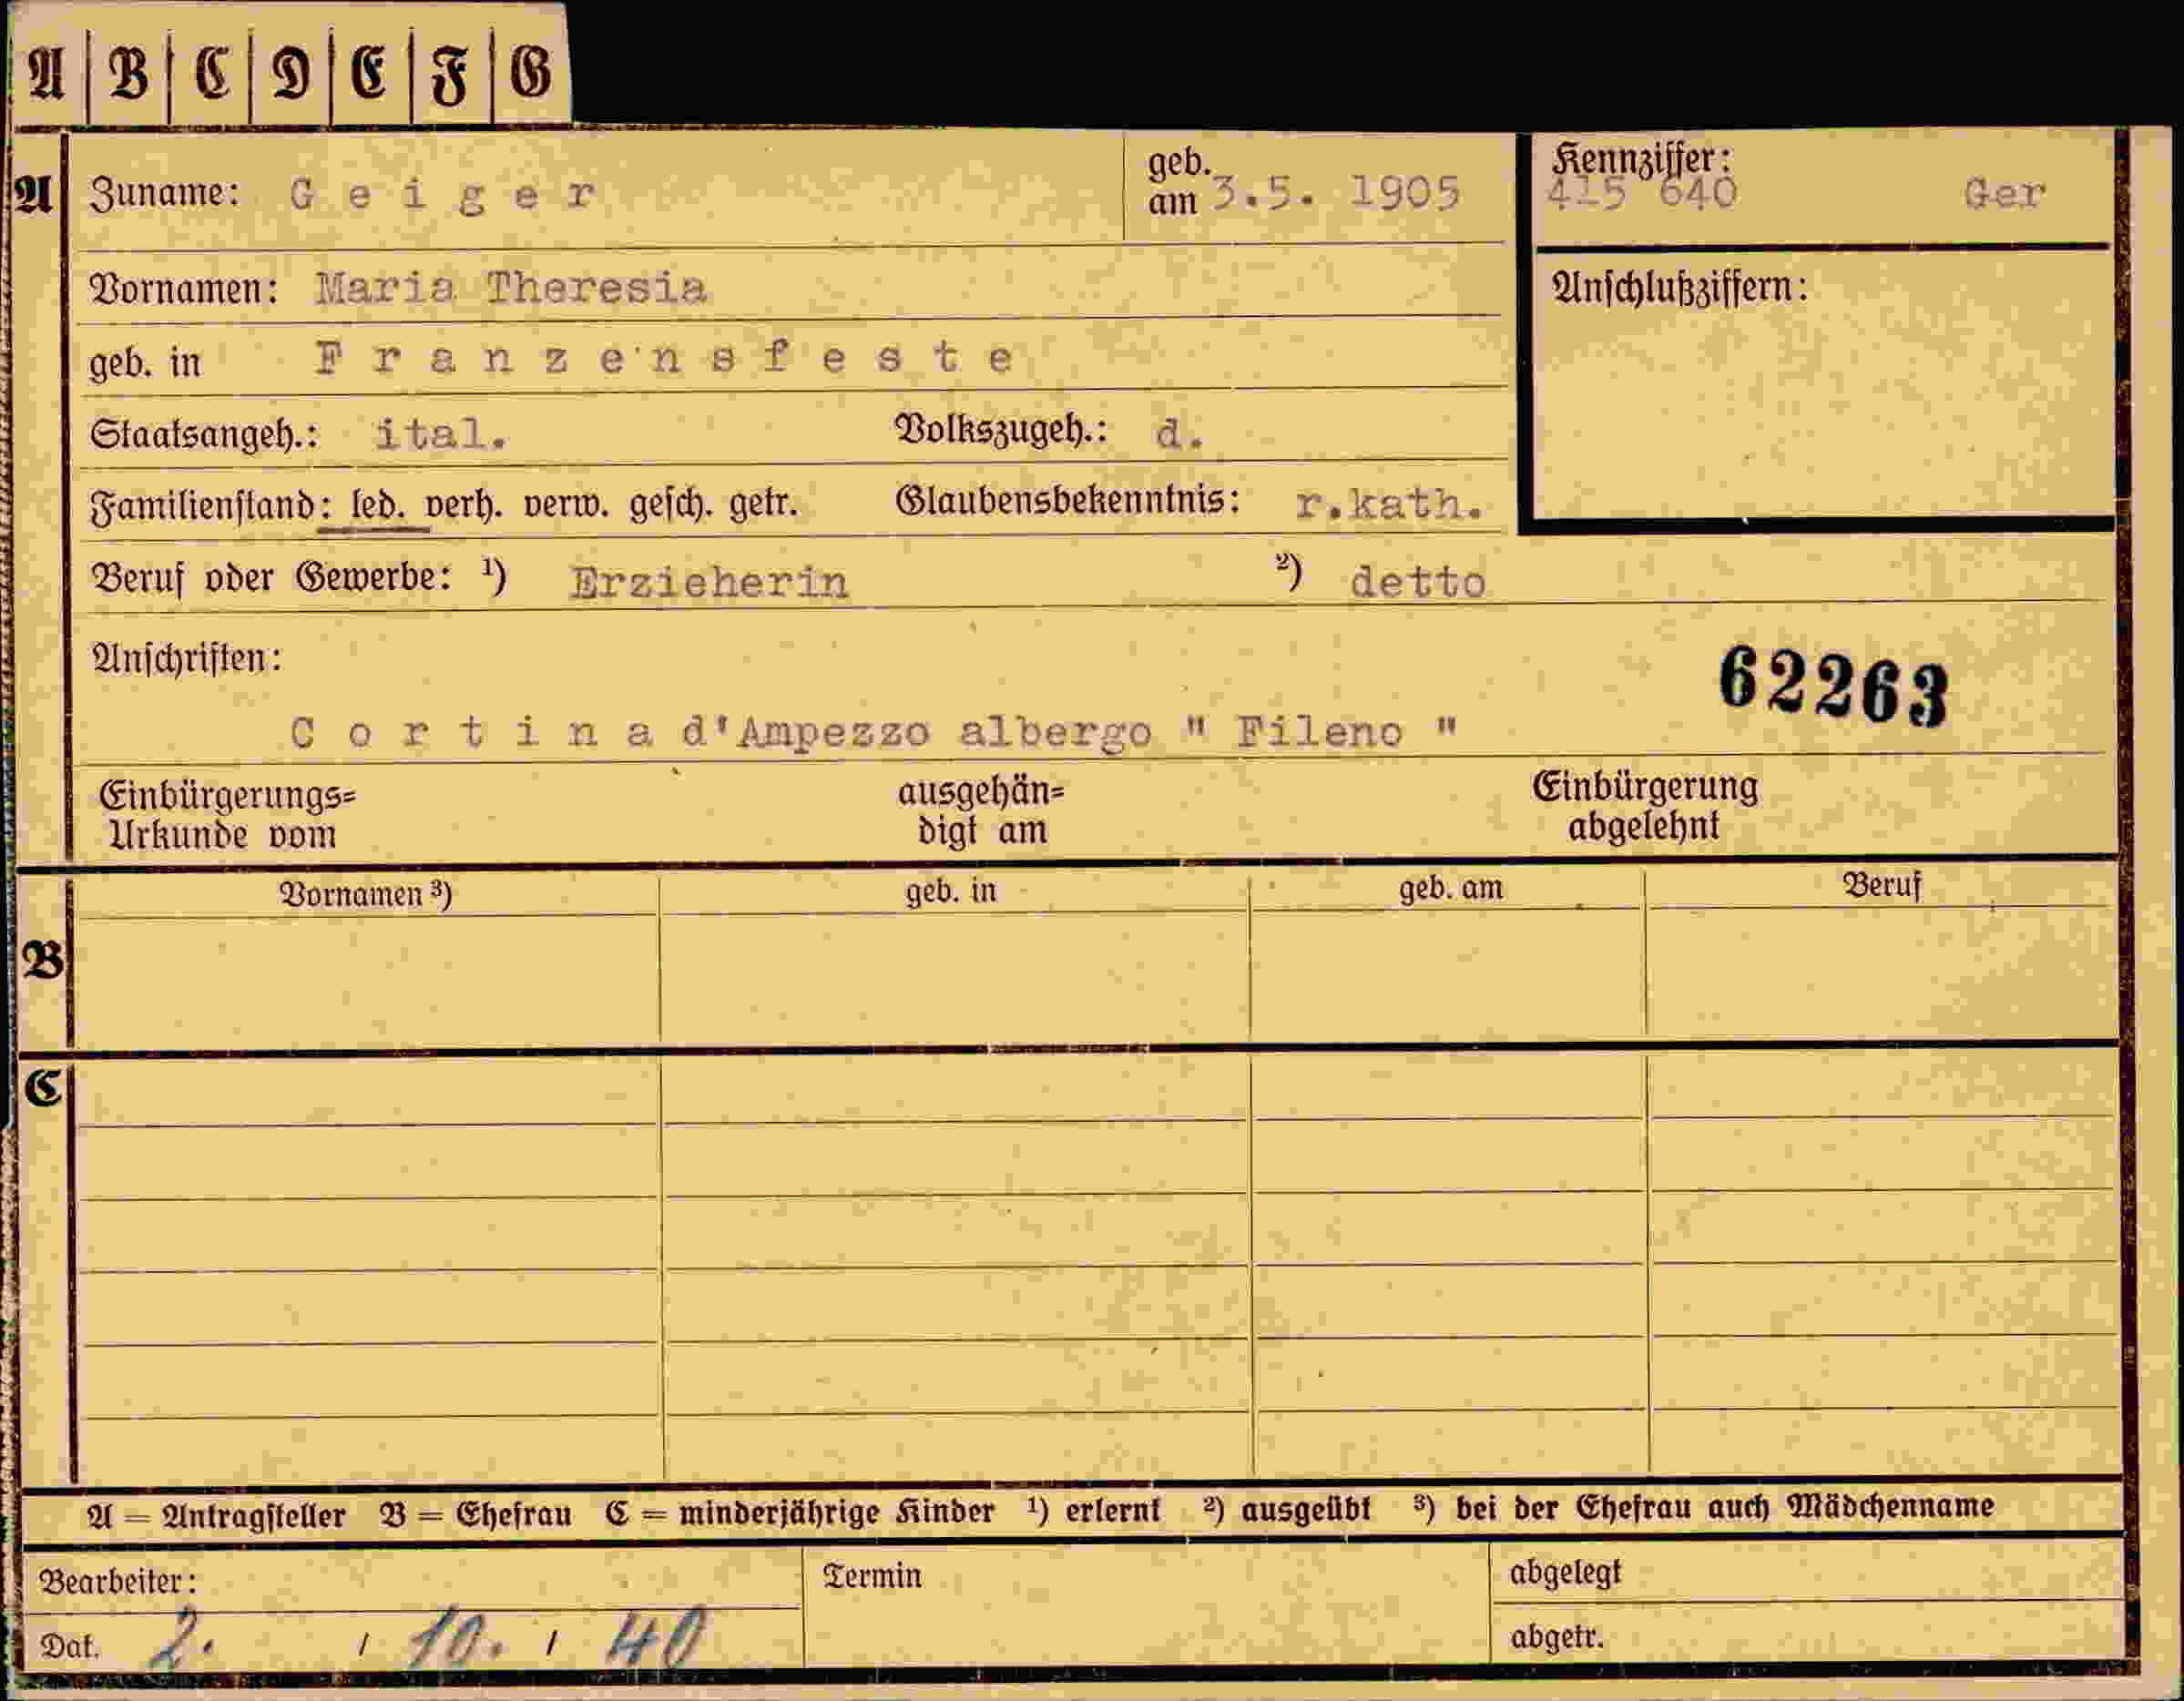 A | B | C | D | E | F | G
A Zuname: Geiger geb. am 3.5. 1905 Kennziffer: 415 640 Ger
Vornamen: Maria Theresia Anschlußziffern:
geb. in Franzensfeste
Staatsangeh.: ital. Volkszugeh.: d.
Familienstand: led. verh. verw. gesch. getr. Glaubensbekenntnis: r.kath.
Beruf oder Gewerbe: ¹) Erzieherin ²) detto
Anschriften: 62263
Cortina d'Ampezzo albergo " Fileno "
Einbürgerungs= ausgehän= Einbürgerung
Urkunde vom digt am abgelehnt
Vornamen ³) geb. in geb. am Beruf
B
C
A = Antragsteller B = Ehefrau C = minderjährige Kinder ¹) erlernt ²) ausgeübt ³) bei der Ehefrau auch Mädchenname
Bearbeiter: Termin abgelegt
Dat. 2. / 10. / 40 abgetr.